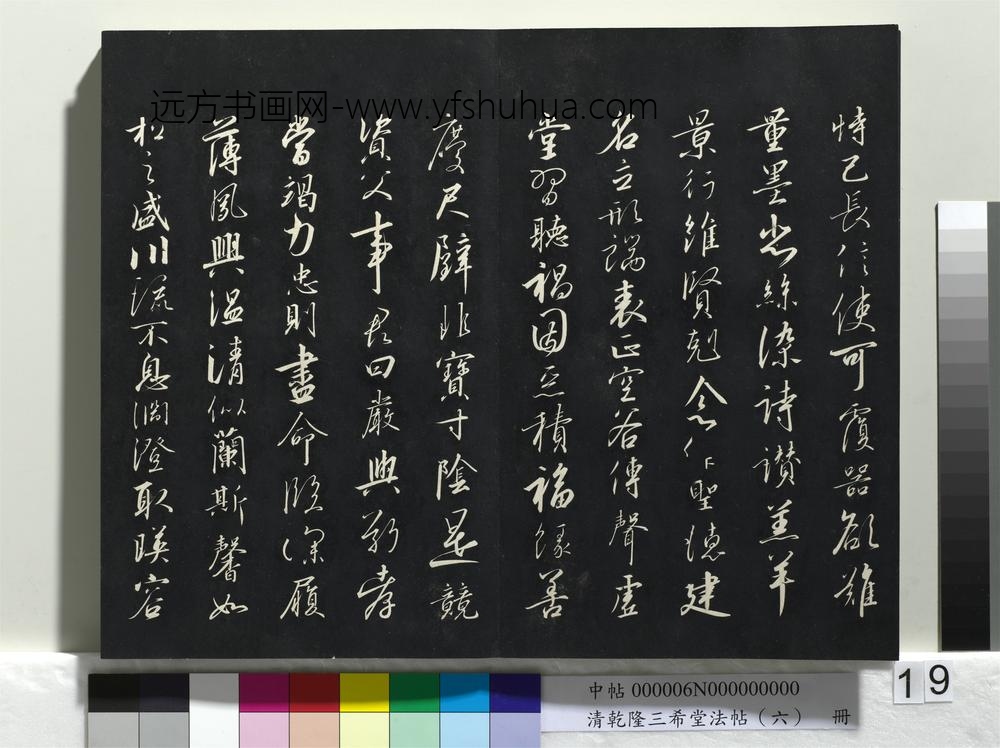 恃己長信使可覆器欲難
量墨悲絲染詩讃羔羊
景行維賢剋念作聖德建
名立形端表正空谷傳聲虛
堂習聽禍因惡積福緣善
慶尺璧非寶寸陰是競
資父事君曰嚴與敬孝
當竭力忠則盡命臨深履
薄夙興温清似蘭斯馨如
松之盛川流不息淵澄取暎容
远方书画网-www.yfshuhua.com
中帖 000006N000000000
清乾隆三希堂法帖（六） 冊
19